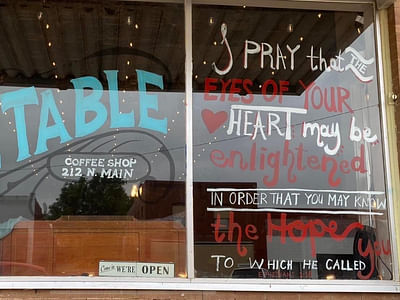 TABLE
COFFEE SHOP
212 N. MAIN
Come in WE'RE OPEN
I PRAY that THE
EYES OF YOUR
HEART may be
enlightened
IN ORDER THAT YOU MAY KNOW
the Hope
TO WHICH HE CALLED
you